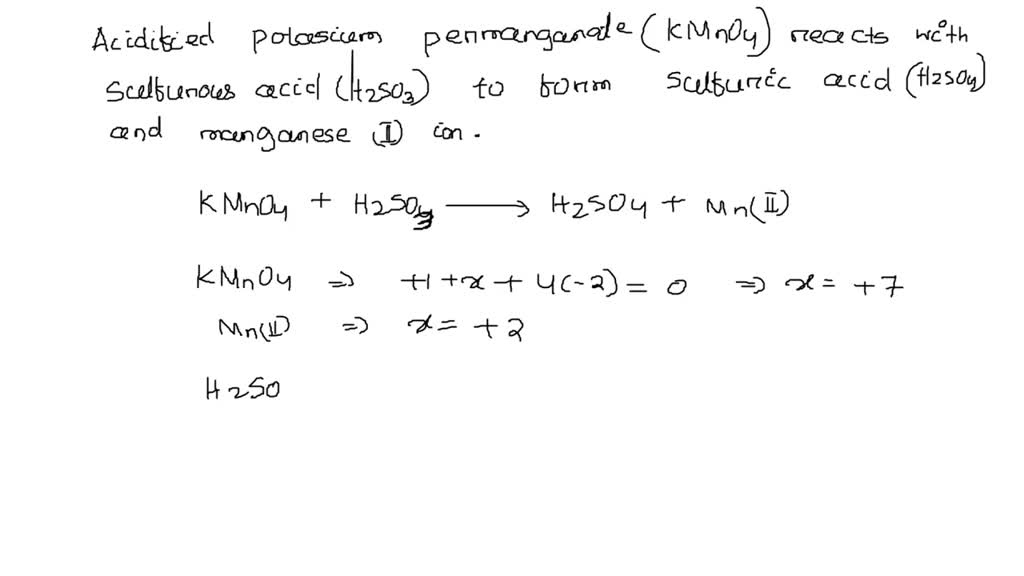 Acidified potassium permanganate (KMnO4) reacts with
sulfurous acid (H2SO3) to form sulfuric acid (H2SO4)
and manganese (II) ion.
KMnO4 + H2SO3 ⟶ H2SO4 + Mn(II)
KMnO4 ⇒ +1+x+4(-2)=0 ⇒ x=+7
Mn(II) ⇒ x=+2
H2SO